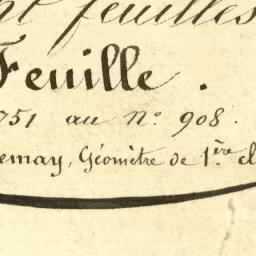 nt feuilles
Feuille.
751 au N.º 908.
emay, Géomètre de 1.ère cl